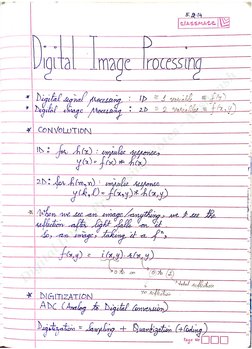 CLASSMATE
Digital Image Processing
* Digital signal processing : 1D = 1 variable = f(x)
* Digital image processing : 2D = 2 variables = f(x,y)
* CONVOLUTION
1D: for h(x) : impulse response,
y(x) = f(x) * h(x)
2D: for h(m,n) : impulse response
y(k,l) = f(x,y) * h(x,y)
* When we see an image/anything, we see the
reflection after light falls on it.
So, an image, taking it a fⁿ,
f(x,y) = i(x,y).r(x,y)
0 to ∞
* DIGITIZATION
ADC (Analog to Digital Conversion)
Digitization = Sampling + Quantization (+Coding)
Page